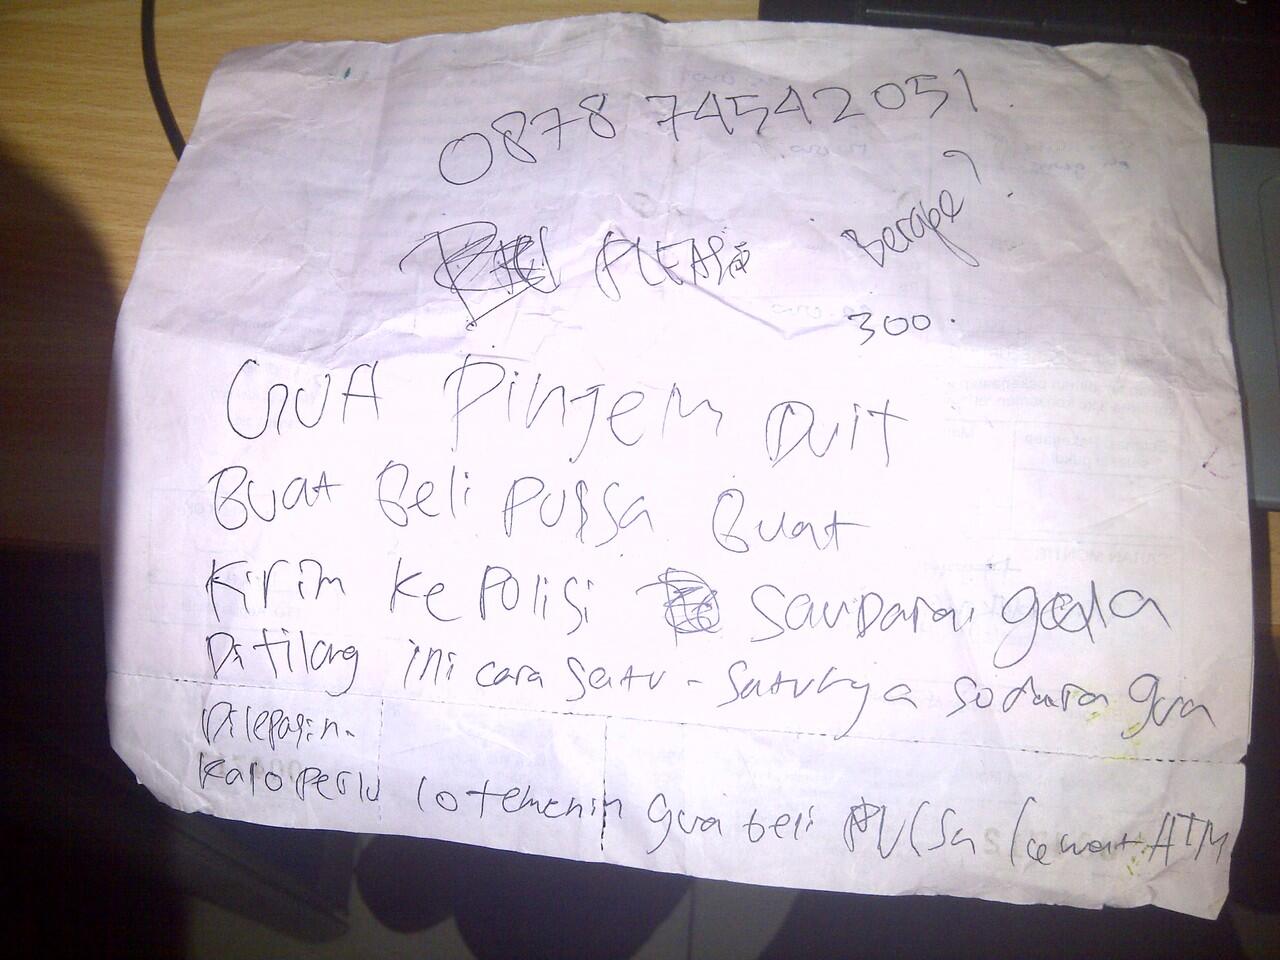 0878 74542051.
PLEASE Berape?
300.
GUA Pinjem Duit
Buat Beli PULSA Buat
Kirim ke Polisi Saudarai guala
Ditilang ini cara satu-satunya sodara gua
Dilepasin.
Kalo perlu lo temenin gua beli PULSA lewat ATM